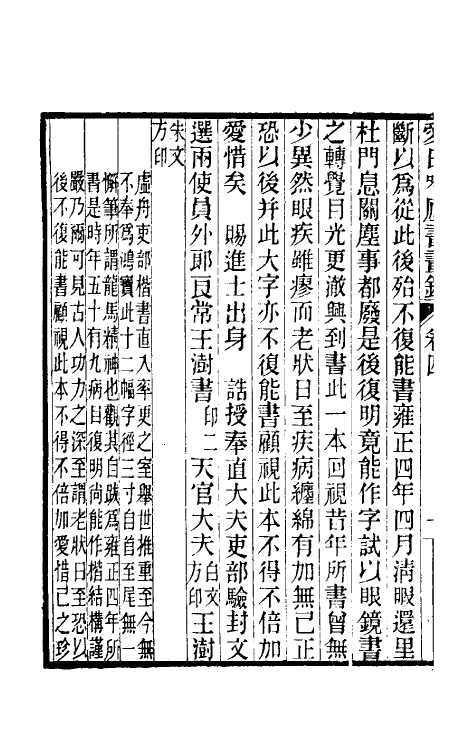 愛日吟廬書畫錄 卷四 一
斷以為從此後殆不復能書雍正四年四月請暇還里
杜門息關塵事都廢是後復明竟能作字試以眼鏡書
之轉覺目光更澈興到書此一本回視昔年所書曾無
少異然眼疾雖瘳而老狀日至疾病纏綿有加無已正
恐以後并此大字亦不復能書顧視此本不得不倍加
愛惜矣　賜進士出身　誥授奉直大夫吏部驗封文
選兩使員外郎良常王澍書 印二 天官大夫 白文方印 王澍
朱文方印
虛舟吏部楷書直入率更之室舉世推重至今無
不奉為鴻寶此十二幅字徑三寸自首至尾無一
懈筆所謂龍馬精神也觀其自跋為雍正四年所
書是時年五十有九病目復明尚能作楷結構謹
嚴乃爾可見古人功力之深至謂老狀日至恐以
後不復能書顧視此本不得不倍加愛惜己之珍